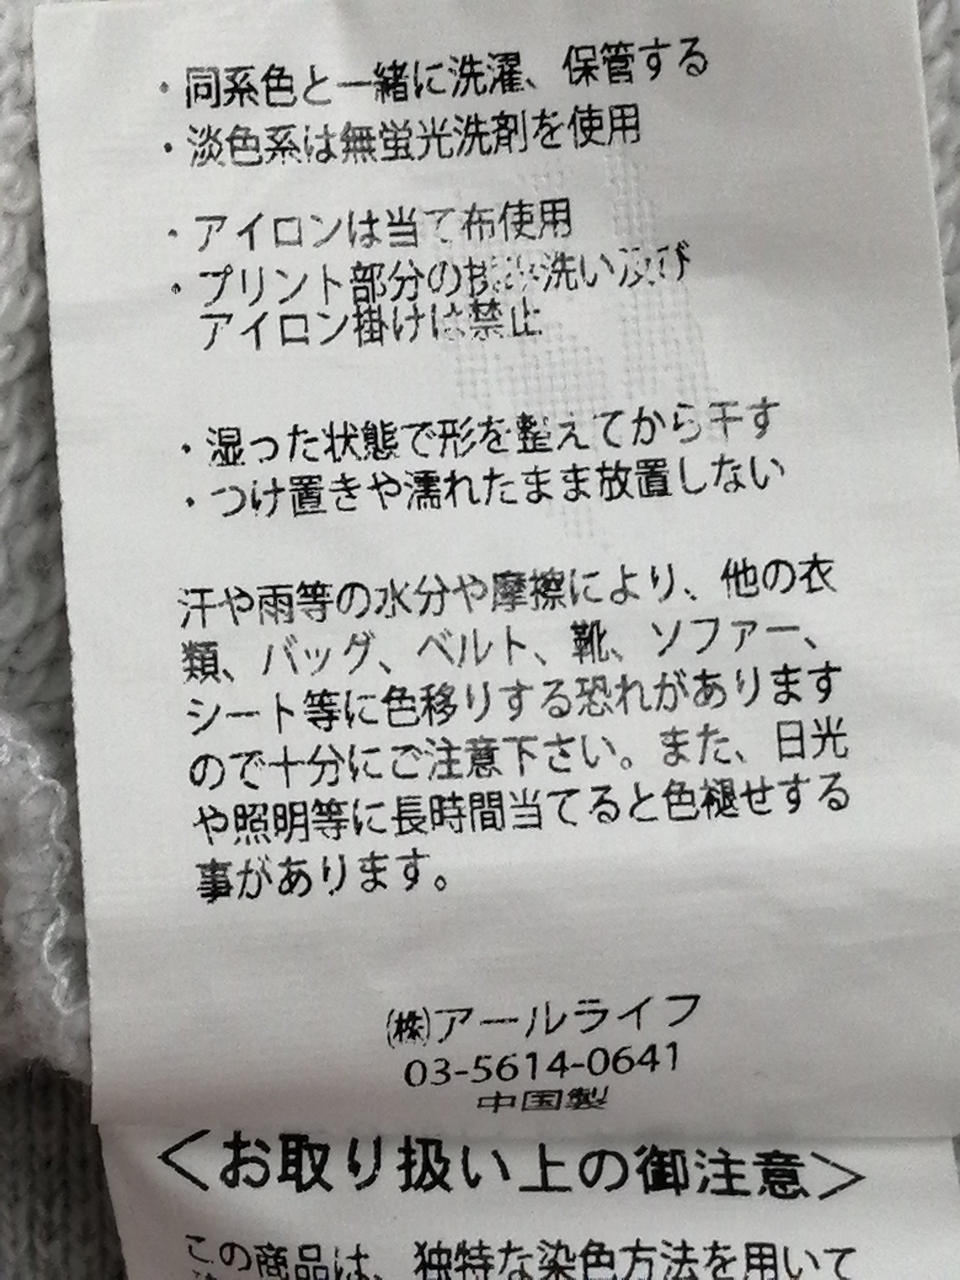 ・同系色と一緒に洗濯、保管する
・淡色系は無蛍光洗剤を使用
・アイロンは当て布使用
・プリント部分の揉み洗い及び
アイロン掛けは禁止
・湿った状態で形を整えてから干す
・つけ置きや濡れたまま放置しない
汗や雨等の水分や摩擦により、他の衣
類、バッグ、ベルト、靴、ソファー、
シート等に色移りする恐れがあります
ので十分にご注意下さい。また、日光
や照明等に長時間当てると色褪せする
事があります。
㈱アールライフ
03-5614-0641
中国製
＜お取り扱い上の御注意＞
この商品は、独特な染色方法を用いて